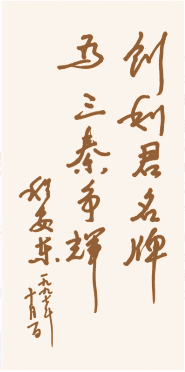 创利君名牌
为三秦争辉
程安东
一九九七年
十月一日